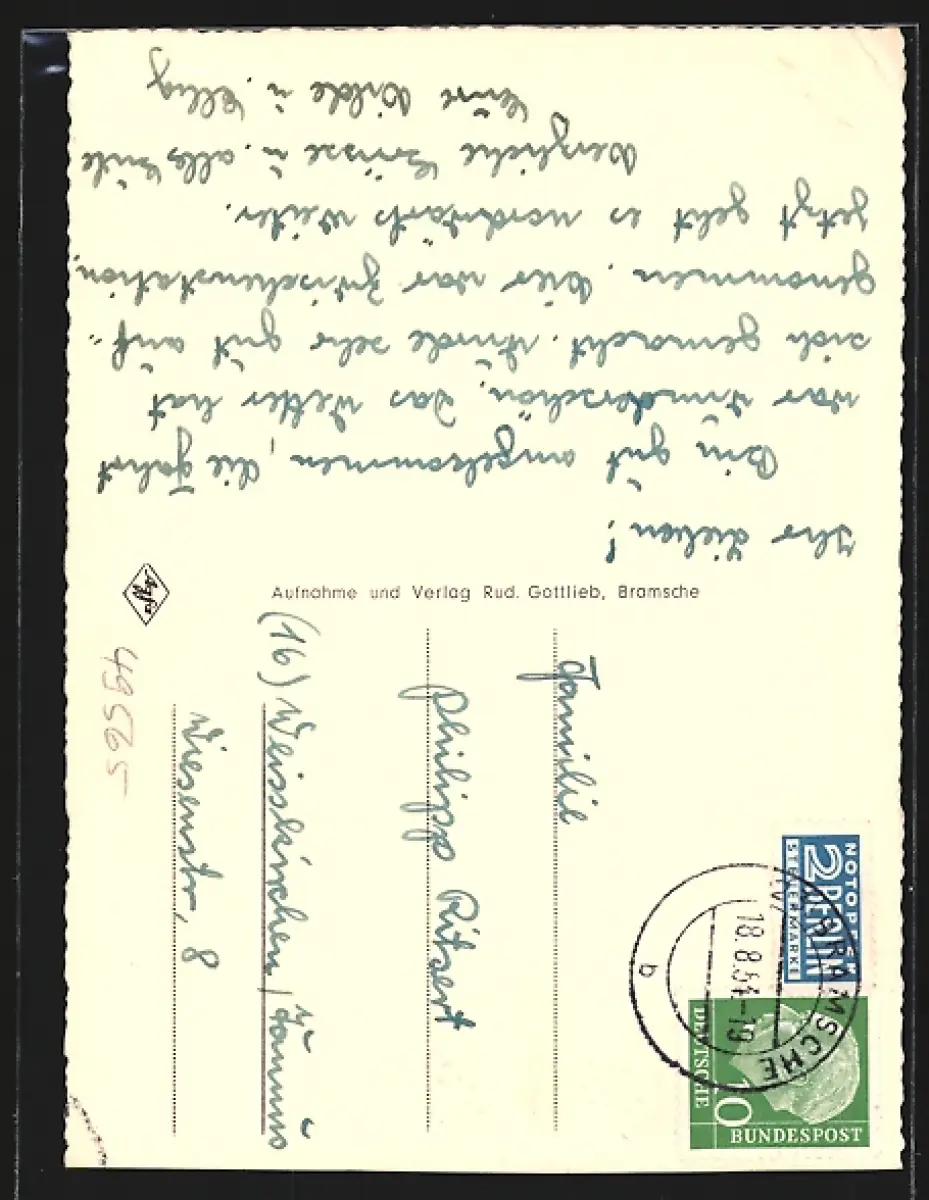 Ihr Lieben!
Bin gut angekommen, die Fahrt
war wunderschön. Das Wetter hat
sich gemacht. Wurde sehr gut auf-
genommen. Hier war Zwischenstation,
jetzt geht es nordwärts weiter.
Herzliche Grüsse u. alles Gute
Eure Hilde u.
Aufnahme und Verlag Rud. Gottlieb, Bramsche
Agfa
Familie
Philipp Ritzert
(16) Weisskirchen / Taunus
Wiesenstr. 8
49565
NOTOPFER
2 BERLIN
STEUERMARKE
BRAMSCHE
18.8.54-19
b
DEUTSCHE
10
BUNDESPOST